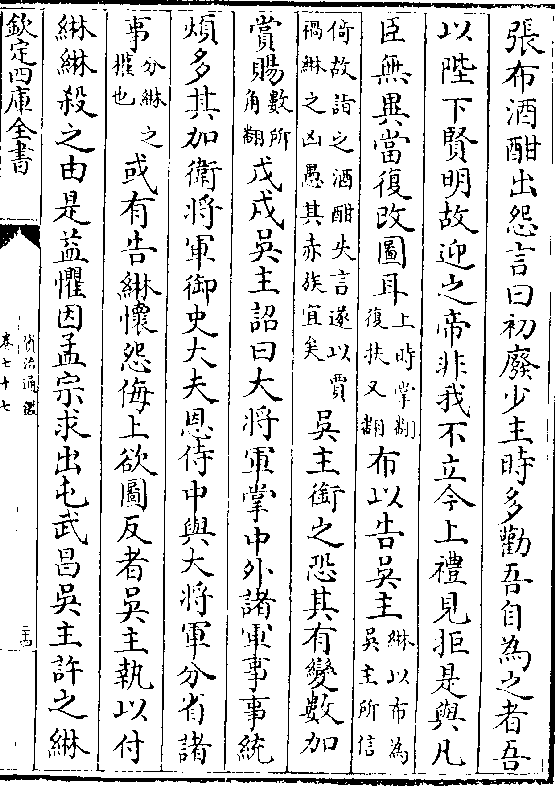 張布酒酣出怨言曰初廢少主時多勸吾自為之者吾
以陛下賢明故迎之帝非我不立今上禮見拒是與凡
臣無異當復改圖耳上時掌翻復扶又翻布以告吳主綝以布為吳主所信
倚故詣之酒酣失言遂以賈禍綝之凶愚其赤族宜矣吳主銜之恐其有變數加
賞賜數所角翻戊戌吳主詔曰大將軍掌中外諸軍事事統
煩多其加衛將軍御史大夫恩侍中與大將軍分省諸
事分綝之權也或有告綝懷怨侮上欲圖反者吳主執以付
綝綝殺之由是益懼因孟宗求出屯武昌吳主許之綝
欽定四庫全書
資治通鑑
卷七十七